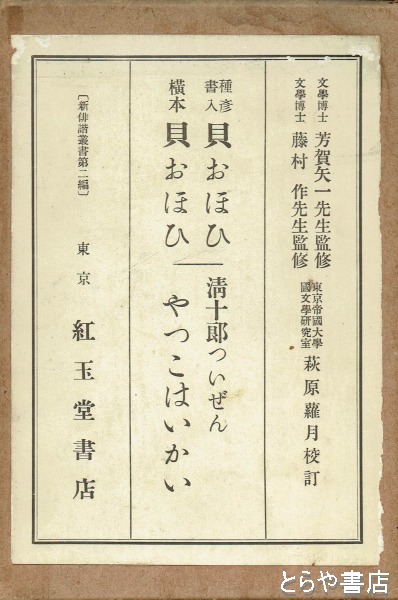 文學博士 芳賀矢一先生監修
文學博士 藤村 作先生監修
東京帝國大學國文學研究室 萩原蘿月校訂
種彥書入 貝おほひ
橫本 貝おほひ
淸十郞ついぜん
やつこはいかい
〔新俳諧叢書第二編〕
東京 紅玉堂書店
とらや書店